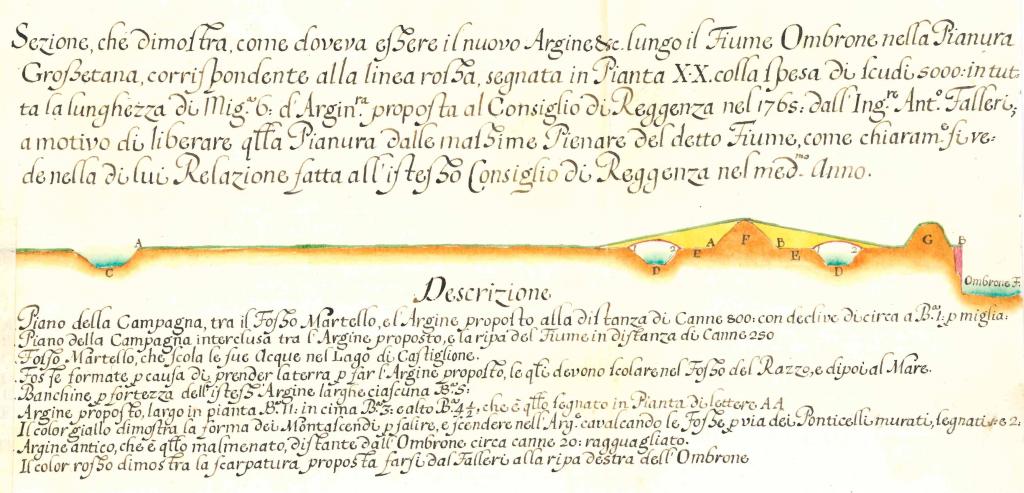 Sezione, che dimostra, come doveva essere il nuovo Argine &c. lungo il Fiume Ombrone nella Pianura
Grossetana, corrispondente alla linea rossa, segnata in Pianta X·X. colla spesa di scudi 5000: in tut
ta la lunghezza di Mig.ᵃ 6: d'Argin.ʳᵃ proposta al Consiglio di Reggenza nel 1765: dall'Ing.ʳᵉ Ant.º Falleri,
a motivo di liberare qlla Pianura dalle massime Pienare del detto Fiume, come chiaram.ᵉ si ve-
de nella di lui Relazione fatta all'istesso Consiglio di Reggenza nel med.ᵐᵒ Anno.
A F G B
A B
E E
C D D
2 2
Ombrone F.
Descrizione
Piano della Campagna, tra il Fosso Martello, e l'Argine proposto alla distanza di Canne 800: con declive di circa a B.ᵃ 1: p miglia:
Piano della Campagna interclusa tra l'Argine proposto, e la ripa del Fiume in distanza di Canne 250
Fosso Martello, che scola le sue Acque nel Lago di Castiglione.
Fosse formate p causa di prender la terra p far l'Argine proposto, le qti devono scolare nel Fosso del Razzo, e dipoi al Mare.
Banchine p fortezza dell'istess'Argine larghe ciascuna B.ᵃ 5:
Argine proposto, largo in pianta B.ᵃ 11: in cima B.ᵃ 3: e alto B.ᵃ 4½, che è qllo segnato in Pianta di lettere AA
Il color giallo dimostra la forma dei Montascendi p salire, e scendere nell'Arg.ᵉ cavalcando le Fosse, p via dei Ponticelli murati, segnati 2:
Argine antico, che è qllo malmenato, distante dall'Ombrone circa canne 20: ragguagliato.
Il color rosso dimostra la scarpatura proposta farsi dal Falleri alla ripa destra dell'Ombrone